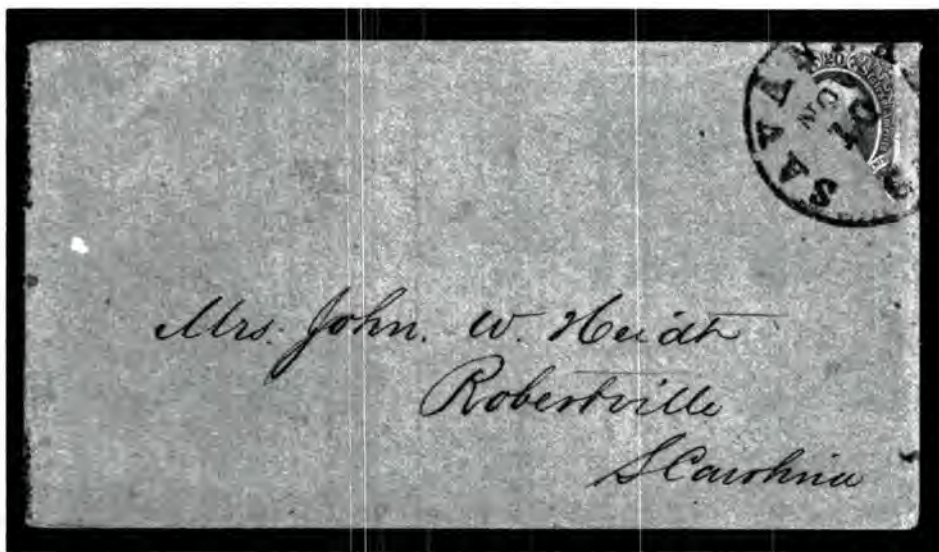 SAVAN
NOV
10
20
Mrs. John. W. Heidt
Robertville
S Carolina